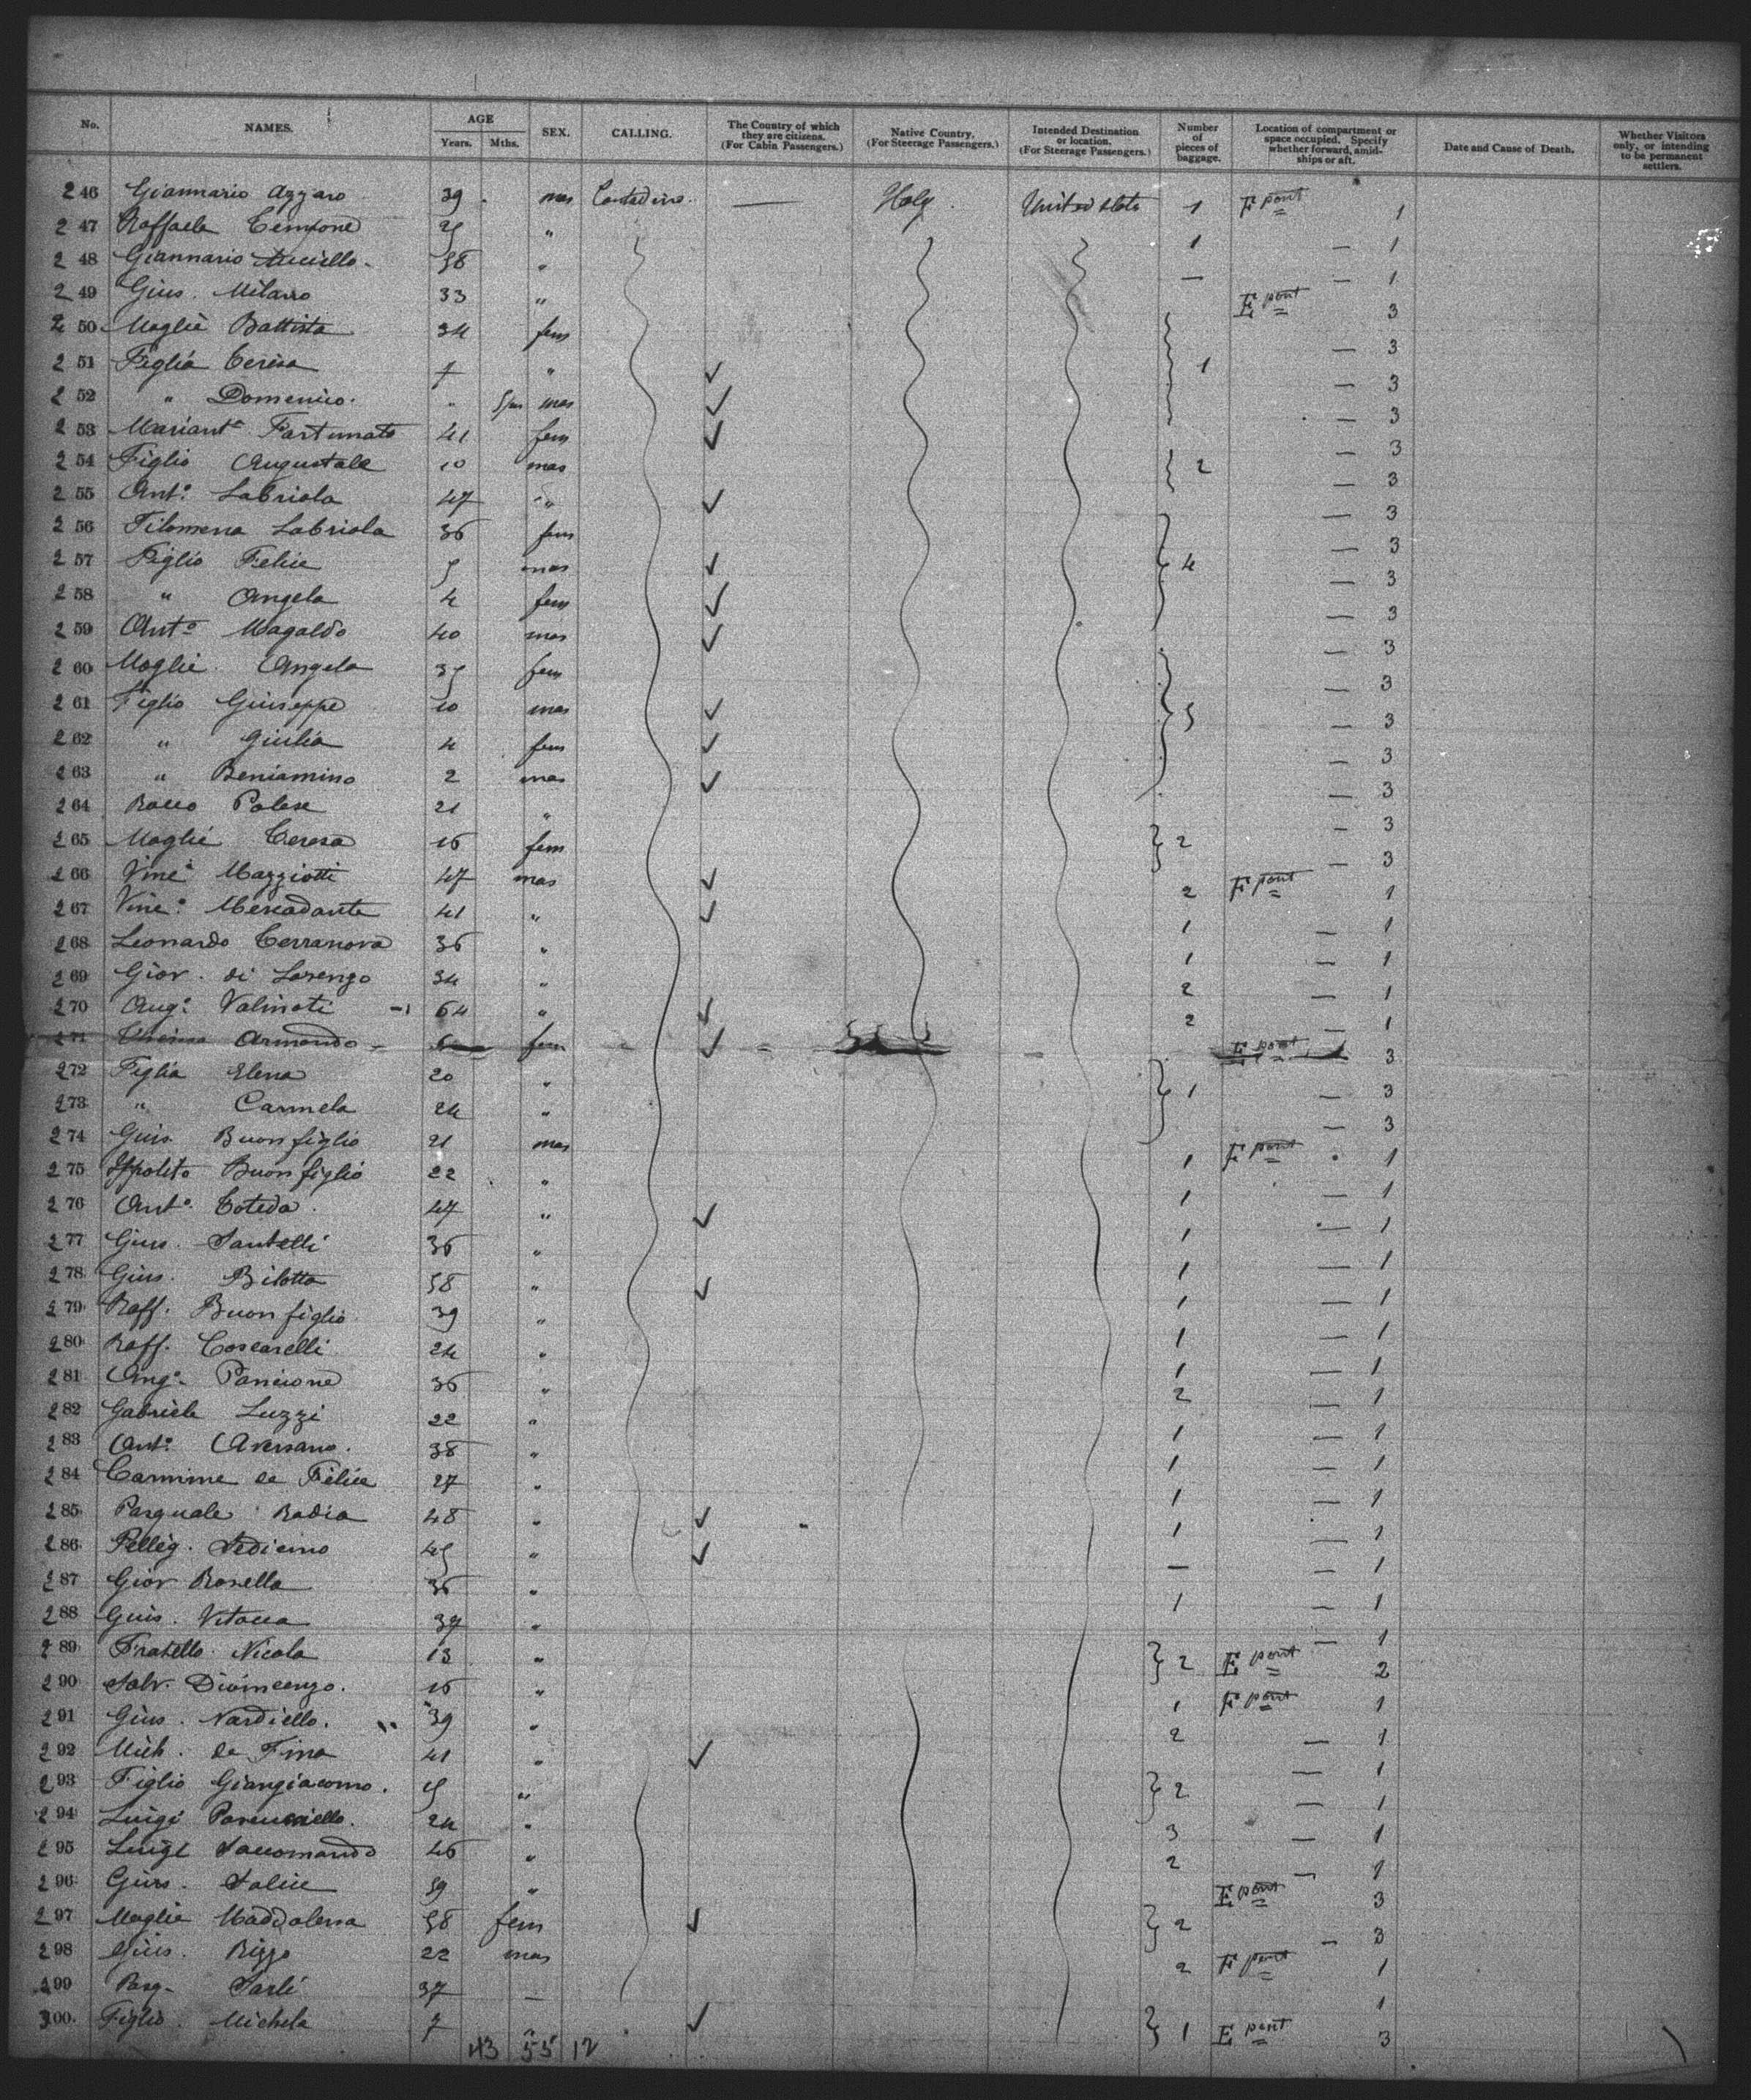 No. NAMES. AGE Years. Mths. SEX. CALLING. The Country of which they are citizens. (For Cabin Passengers.) Native Country, (For Steerage Passengers.) Intended Destination or location. (For Steerage Passengers.) Number of pieces of baggage. Location of compartment or space occupied. Specify whether forward, amidships or aft. Date and Cause of Death. Whether Visitors only, or intending to be permanent settlers.
246 Giannario Azzaro 39 mas Contadino — Italy United States 1 E pont 1
247 Raffaele 25 " 1 — 1
248 Giannario 38 " — — 1
249 Gius. Milano 33 " E pont 3
250 Moglie Battista 34 fem — 3
251 Figlia Teresa " 1 — 3
252 " Domenico. " mas — 3
253 Mariant Fortunato 41 fem — 3
254 Figlio Augustale 10 mas 2 — 3
255 Ant.o Labriola 47 " — 3
256 Filomena Labriola 36 fem — 3
257 Figlio Felice 5 mas 4 — 3
258 " Angela 4 fem — 3
259 Ant.o Magaldo 40 mas — 3
260 Moglie Angela 35 fem — 3
261 Figlio Giuseppe 10 mas 5 — 3
262 " Giulia 4 fem — 3
263 " Beniamino 2 mas — 3
264 Rocco Polese 21 " — 3
265 Moglie Teresa 16 fem 2 — 3
266 Vinc.o Mazziotti 47 mas 2 E pont 1
267 Vinc.o Mercadante 41 " 1 — 1
268 Leonardo Terranova 36 " 1 — 1
269 Giov. di Lorenzo 34 " 2 — 1
270 Aug.o Valinoti 64 " 2 — 1
271 Armando fem E pont 3
272 Figlia Elena 20 " 1 — 3
273 " Carmela 24 " — 3
274 Gius. Buonfiglio 21 mas 1 E pont 1
275 Ippolito Buonfiglio 22 " 1 — 1
276 Ant.o Toteda 47 " 1 — 1
277 Gius. Santelli 36 " 1 — 1
278 Gius. Bilotta 58 " 1 — 1
279 Raff. Buonfiglio 39 " 1 — 1
280 Raff. Coscarelli 24 " 1 — 1
281 Ang.o Pancione 36 " 2 — 1
282 Gabriele Luzzi 22 " 1 — 1
283 Ant.o Aversano. 38 " 1 — 1
284 Carmine de Felice 27 " 1 — 1
285 Pasquale Badia 48 " 1 — 1
286 Pelleg. Sedicino 45 " — — 1
287 Giov Rosella 36 " 1 — 1
288 Gius. Vitacca 37 " — 1
289 Fratello Nicola 13 " 2 E pont 2
290 Salv. Divincenzo. 16 " 1 E pont 1
291 Gius. Nardiello. 39 " 2 — 1
292 Mich. de Fina 41 " — 1
293 Figlio Giangiacomo. 15 " 2 — 1
294 Luigi 24 " 3 — 1
295 Luigi Saccomando 46 " 2 — 1
296 Gius. Salice 59 " E pont 3
297 Moglie Maddalena 58 fem 2 — 3
298 Gius. Rizzo 22 mas 2 E pont 1
299 Pasq. Sarli 37 — 1
300. Figlio Michele 7 " 1 E pont 3
43 55 12